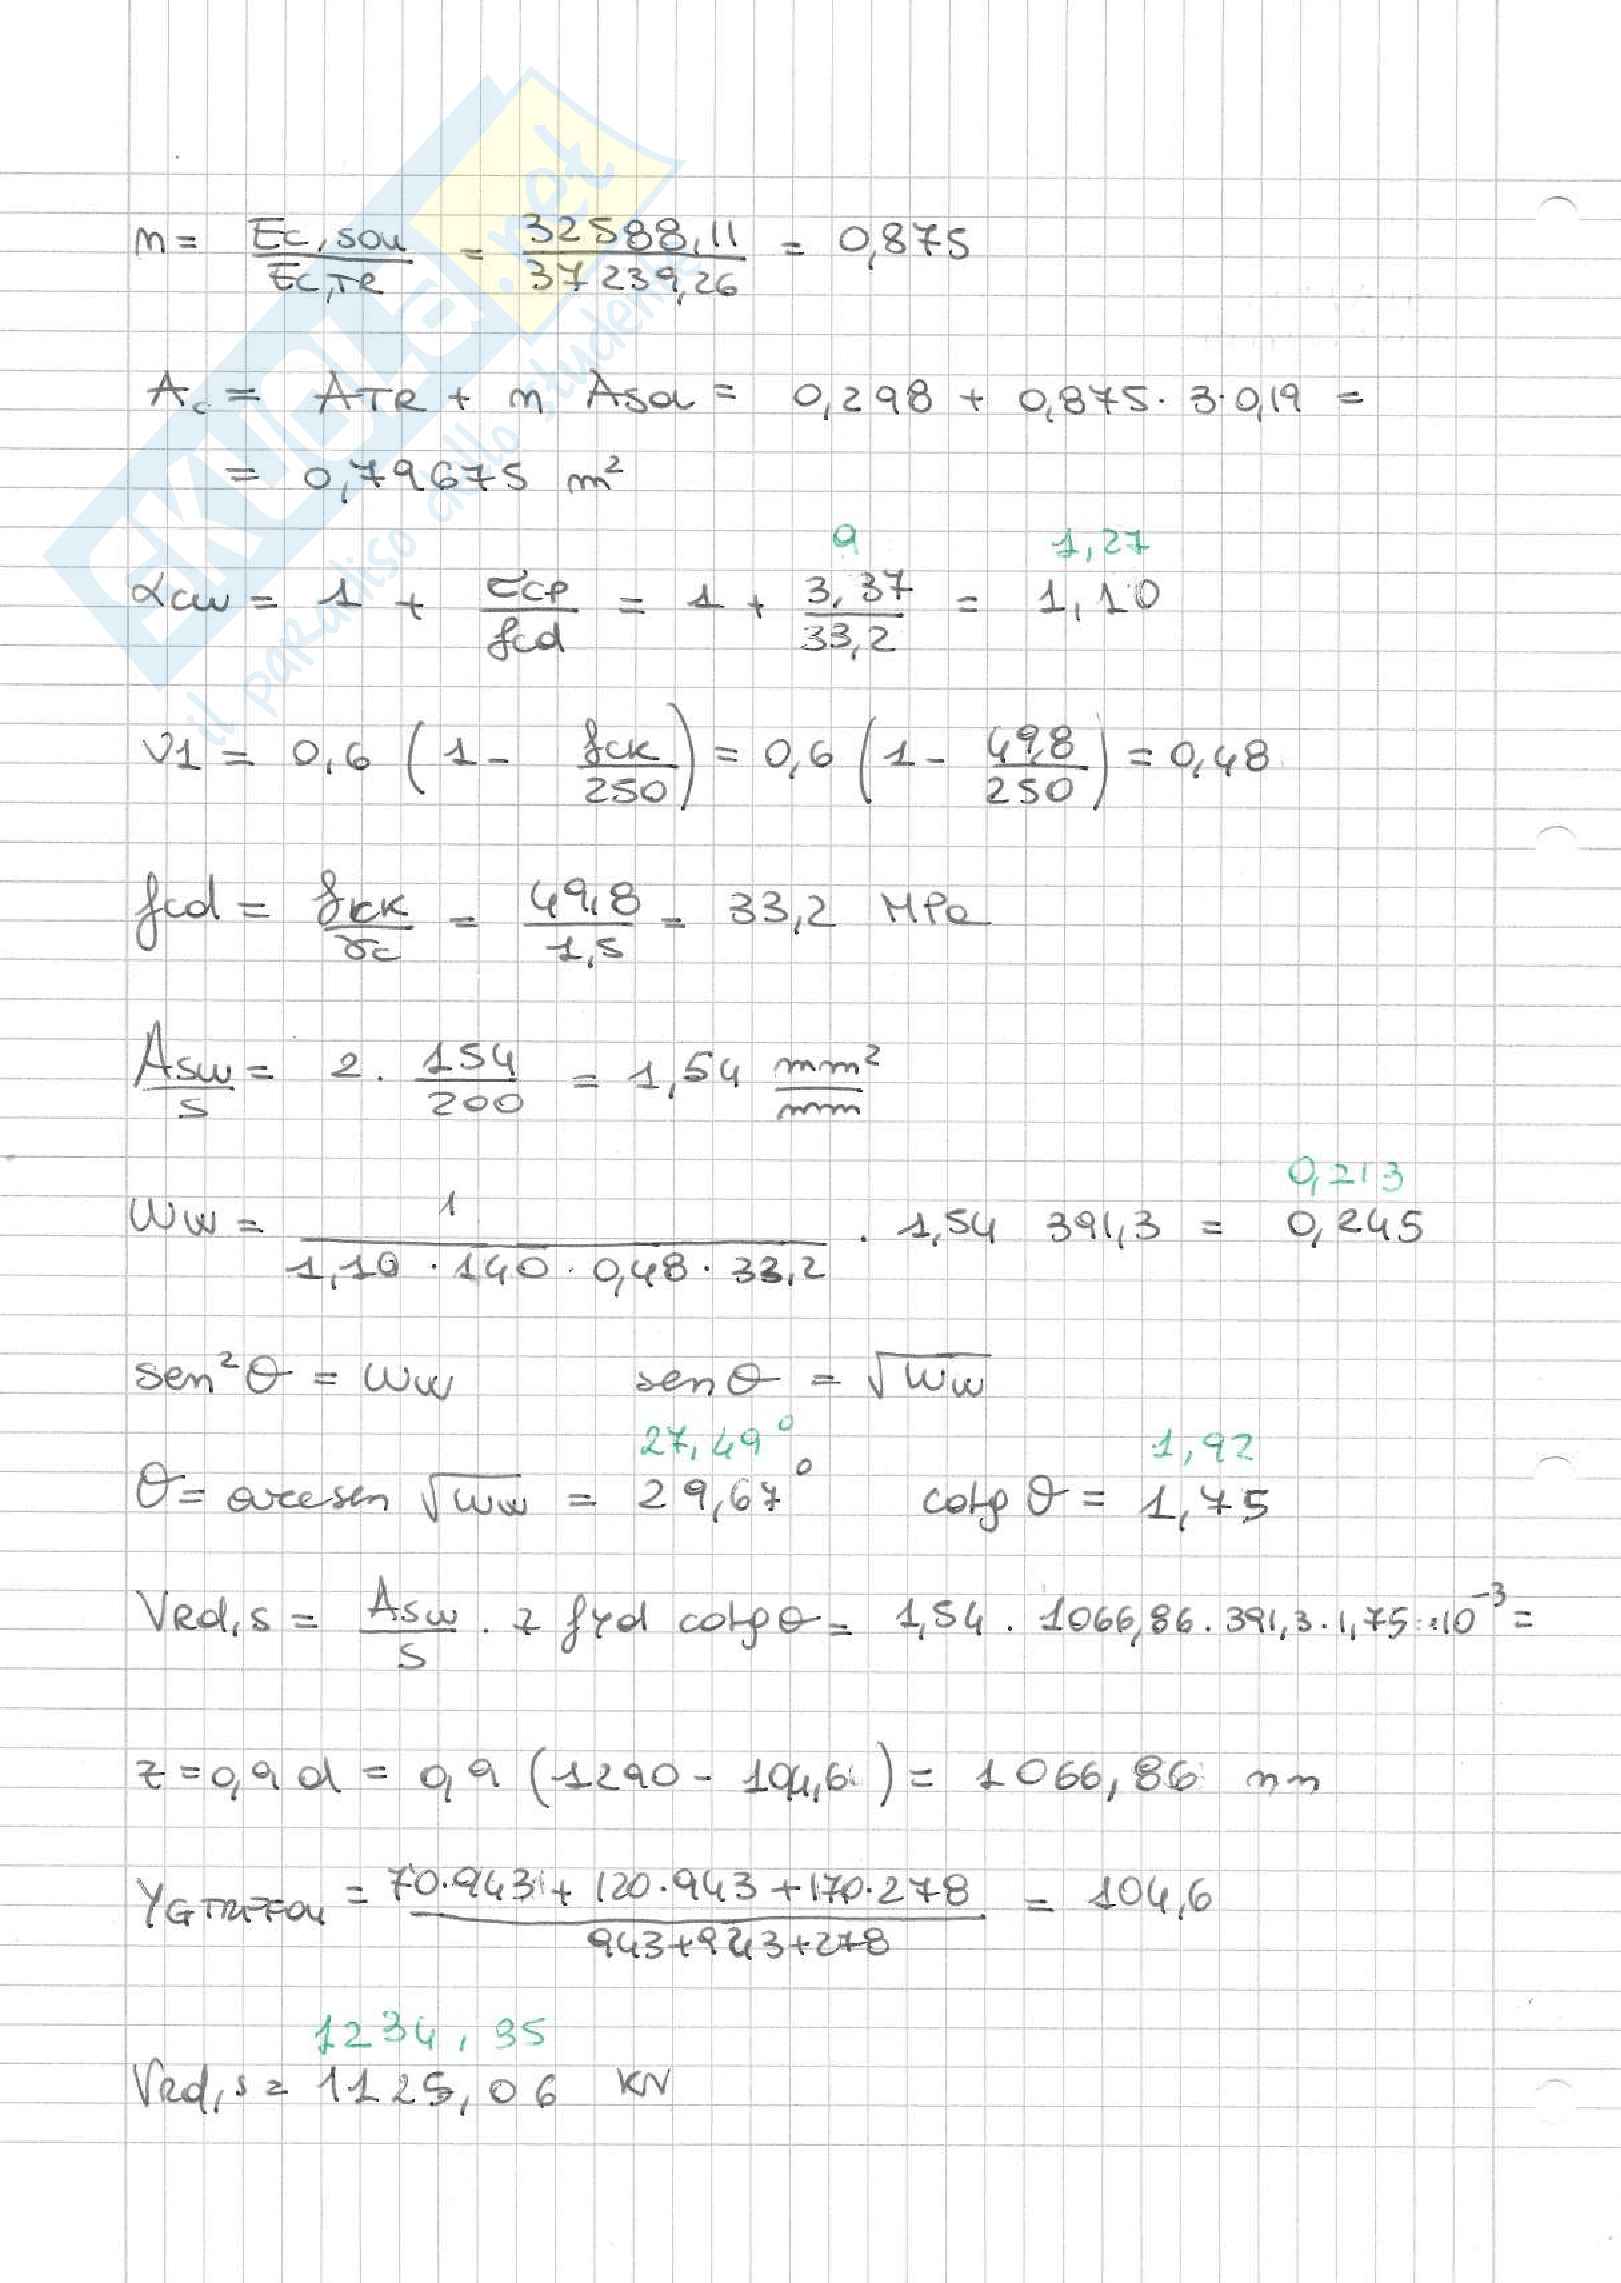 n = Ec,sol / Ec,TR = 32588,11 / 37239,26 = 0,875
Ac = ATR + n Asol = 0,298 + 0,875 · 3 · 0,19 =
= 0,79675 m²
9 1,27
αcw = 1 + σcp / fcd = 1 + 3,37 / 33,2 = 1,10
ν1 = 0,6 (1 - fck / 250) = 0,6 (1 - 49,8 / 250) = 0,48
fcd = fck / γc = 49,8 / 1,5 = 33,2 MPa
Asw / s = 2 · 154 / 200 = 1,54 mm² / mm
0,213
ωw = 1 / 1,10 · 140 · 0,48 · 33,2 · 1,54 391,3 = 0,245
sen²θ = ωw sen θ = √ωw
27,49° 1,92
θ = arcsen √ωw = 29,67° cotg θ = 1,75
VRd,s = Asw / s · z fyd cotg θ = 1,54 · 1066,86 · 391,3 · 1,75 · 10⁻³ =
z = 0,9 d = 0,9 (1290 - 104,6) = 1066,86 mm
YG TREFOLI = 70·943 + 120·943 + 170·278 / 943+943+278 = 104,6
1234,35
VRd,s = 1125,06 KN
SKUOLA.net
il paradiso dello studente